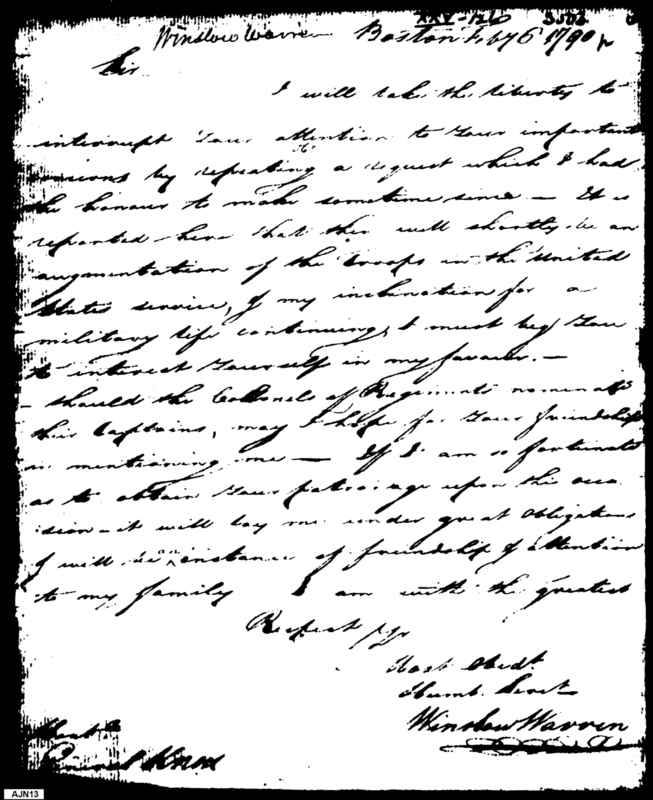 XXV-126 3502
Winslow Warren Boston Feby 6 1790
Sir
I will take the liberty to
interrupt Your attention to Your important
by repeating a request which I had
the honour to make sometime since — It is
reported here that ther will shortly be an
augmentation of the Troops in the United
States service, & my inclination for a
military life continuing, I must beg You
to interest Yourself in my favour. —
— should the Colonels of Regiments nominate
their Captains, may I hope for Your friendship
in mentioning me — If I am so fortunate
as to obtain Your patronage upon this occa
sion — it will lay me under great Obligations
& will be an instance of friendship & attention
to my family I am with the greatest
Respect Yr
Most Obedt
Humb. Servt
Winslow Warren
Honble
General Knox
AJN13